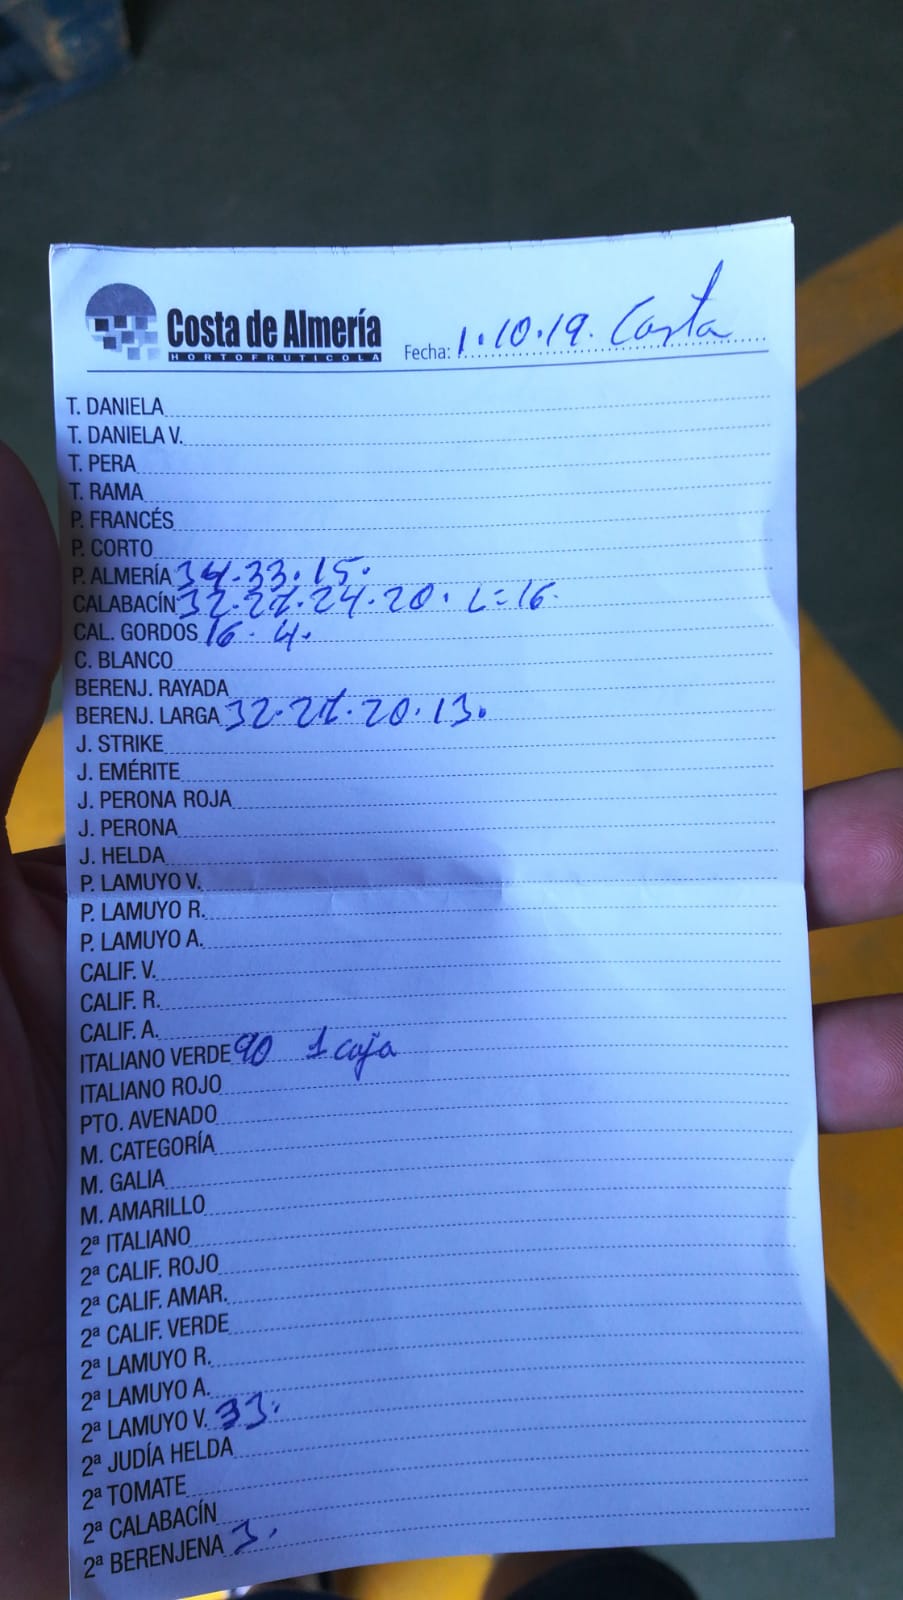 Costa de Almería
HORTOFRUTICOLA
Fecha: 1.10.19. Costa
T. DANIELA
T. DANIELA V.
T. PERA
T. RAMA
P. FRANCÉS
P. CORTO
P. ALMERÍA 34.33.15.
CALABACÍN 32.27.24.20. L=16.
CAL. GORDOS 16. 4.
C. BLANCO
BERENJ. RAYADA
BERENJ. LARGA 32.27.20.13.
J. STRIKE
J. EMÉRITE
J. PERONA ROJA
J. PERONA
J. HELDA
P. LAMUYO V.
P. LAMUYO R.
P. LAMUYO A.
CALIF. V.
CALIF. R.
CALIF. A.
ITALIANO VERDE 90 1 caja
ITALIANO ROJO
PTO. AVENADO
M. CATEGORÍA
M. GALIA
M. AMARILLO
2ª ITALIANO
2ª CALIF. ROJO
2ª CALIF. AMAR.
2ª CALIF. VERDE
2ª LAMUYO R.
2ª LAMUYO A.
2ª LAMUYO V. 33.
2ª JUDÍA HELDA
2ª TOMATE
2ª CALABACÍN
2ª BERENJENA 3.